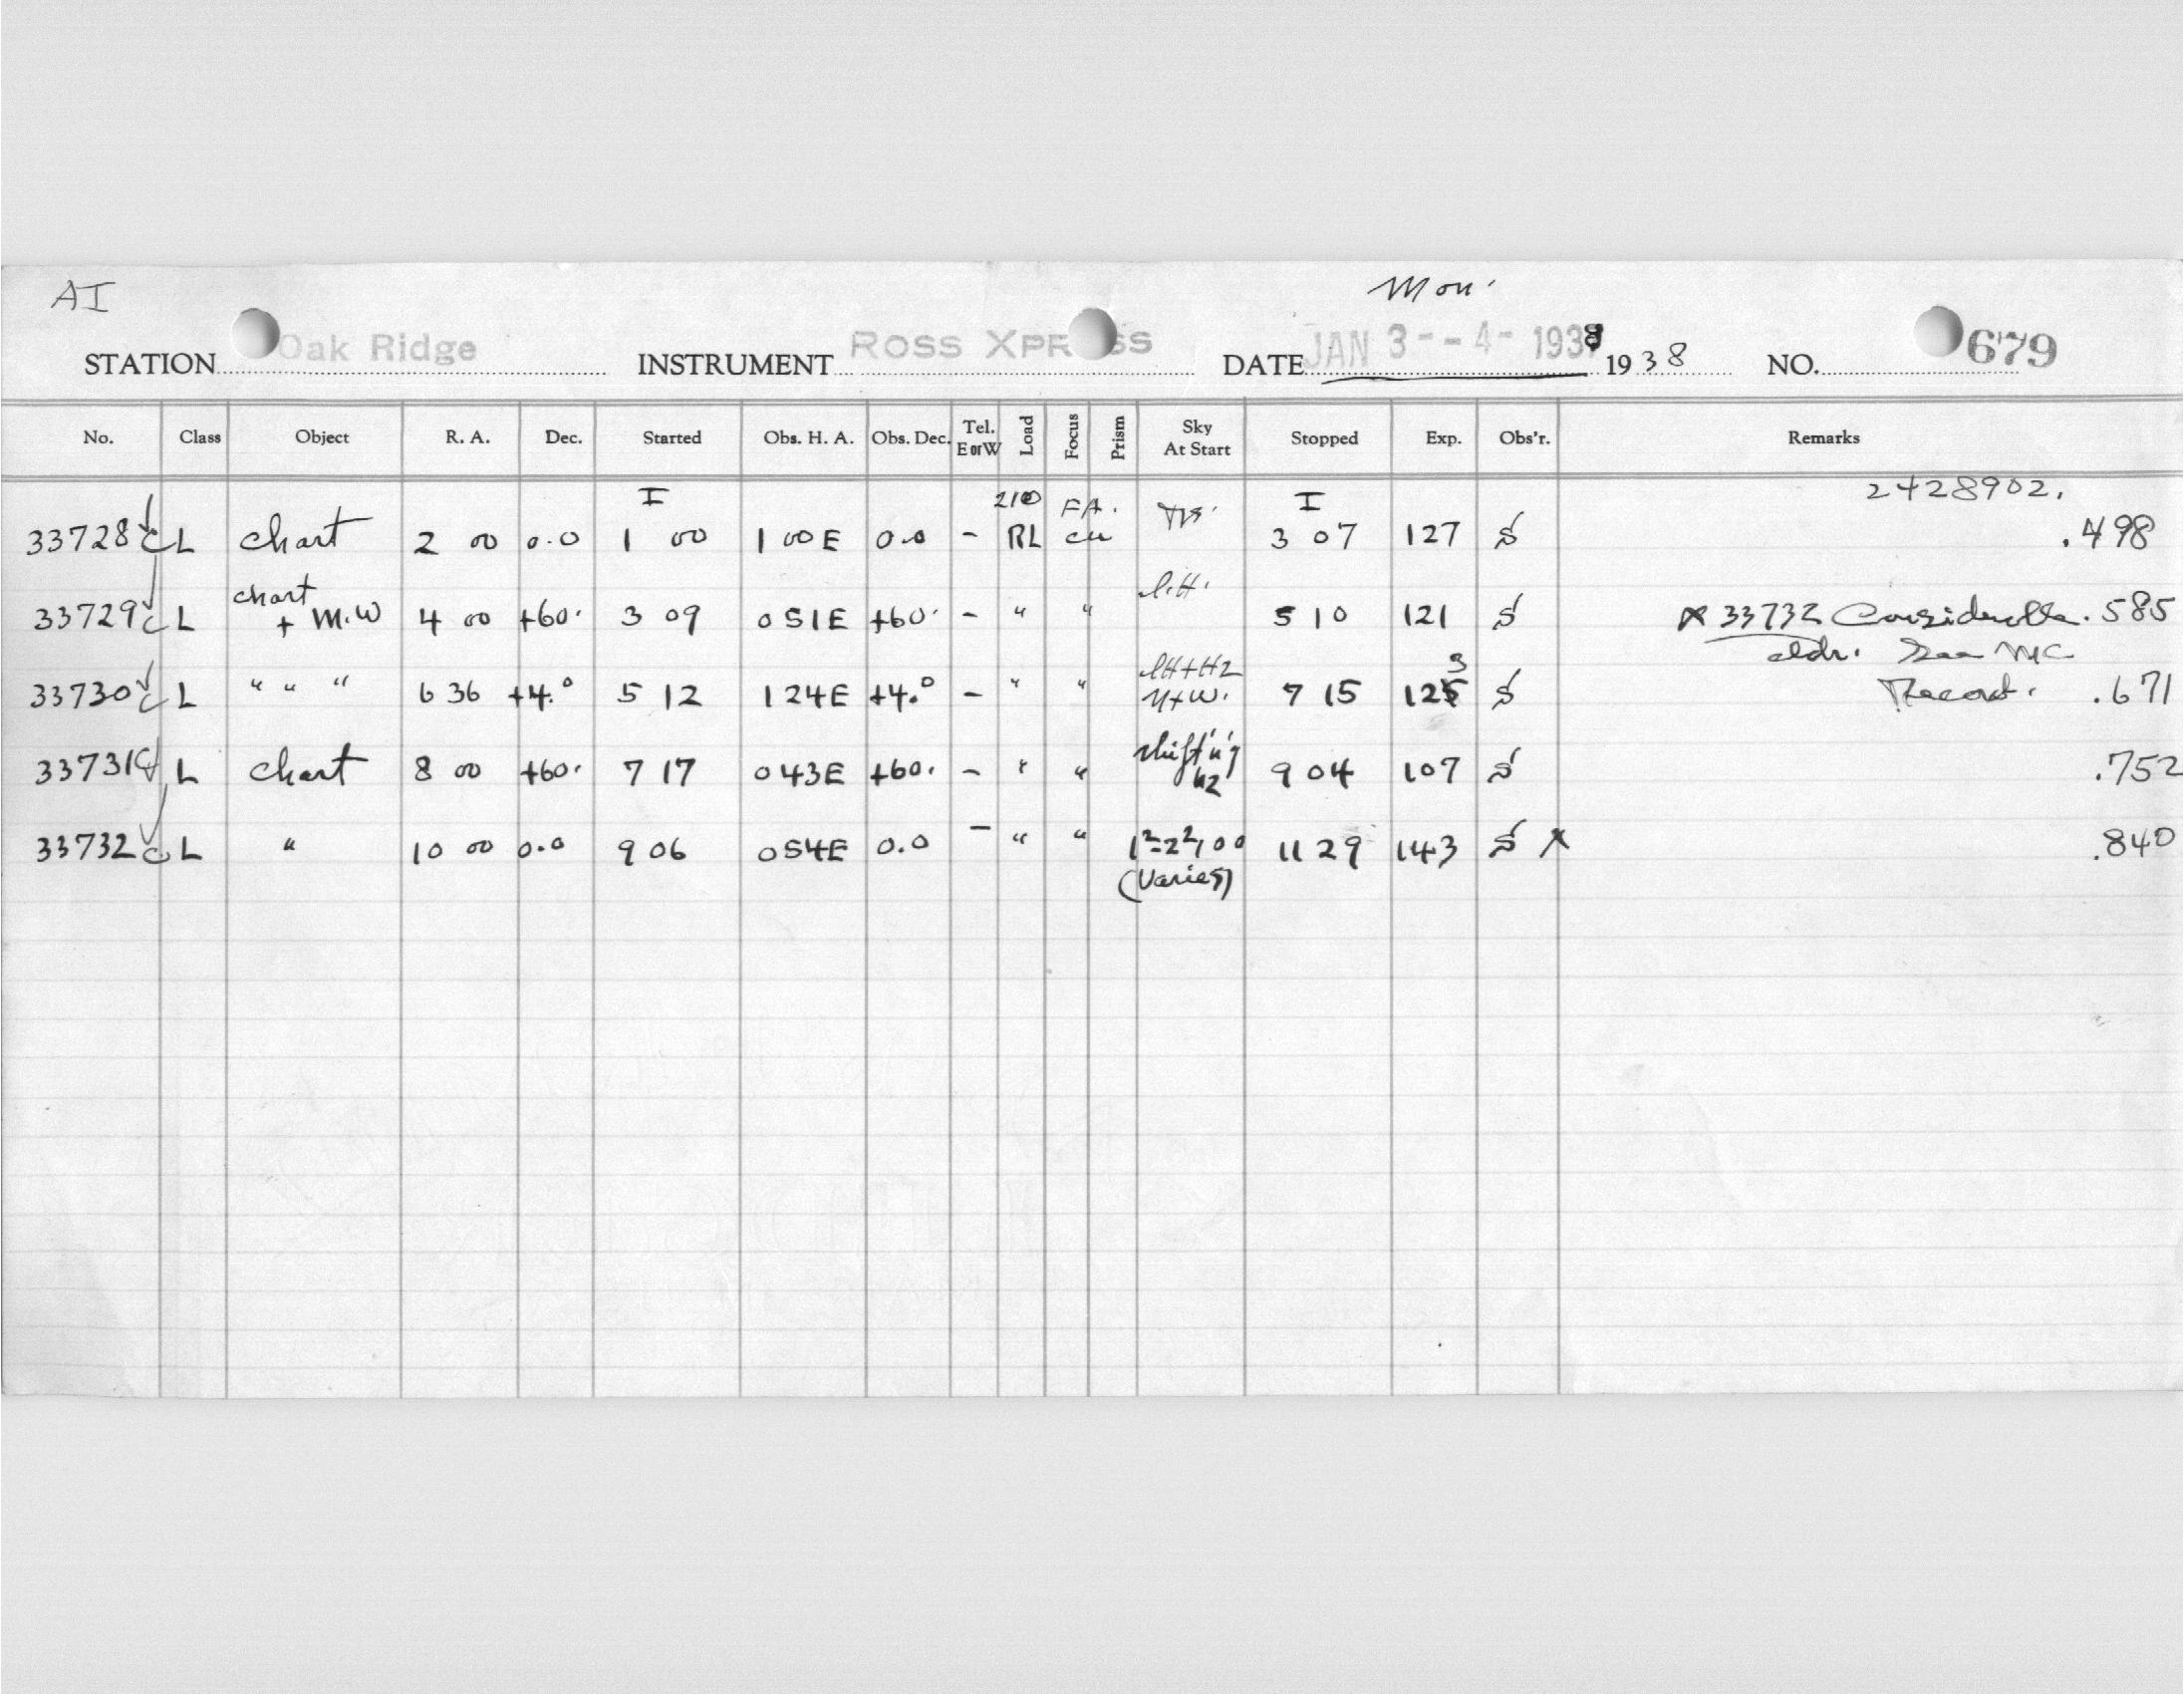 AI
Mon.
STATION Oak Ridge INSTRUMENT ROSS XPRESS DATE JAN 3 - - 4 - 1938 1938 NO. 679
No. Class Object R. A. Dec. Started Obs. H. A. Obs. Dec. Tel. E or W Load Focus Prism Sky At Start Stopped Exp. Obs'r. Remarks
I 2100 FA. I 2428902.
33728 C L chart 2 00 0.0 1 00 1 00 E 0.0 - RL cu 3 07 127 S .498
33729 C L chart + M.W 4 00 +60. 3 09 0 51 E +60. - " " l.H. 5 10 121 S x 33732 Considerable .585
cldr. See MC
33730 C L " " " 6 36 +4.° 5 12 1 24 E +4.° - " " lH+Hz 7 15 123 S Record. .671
33731 C L chart 8 00 +60. 7 17 0 43 E +60. - " " shifting Hz 9 04 107 S .752
33732 C L " 10 00 0.0 9 06 0 54 E 0.0 - " " 1²-2²,100 11 29 143 S x .840
(Varies)